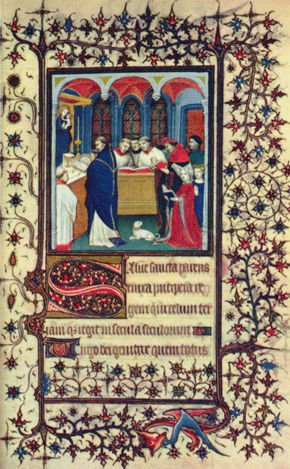 Salue sancta parens
enixa puerpera re
gem qui celum ter
ram qui regit in secula seculorum
Uirgo dei genitrix quem totus